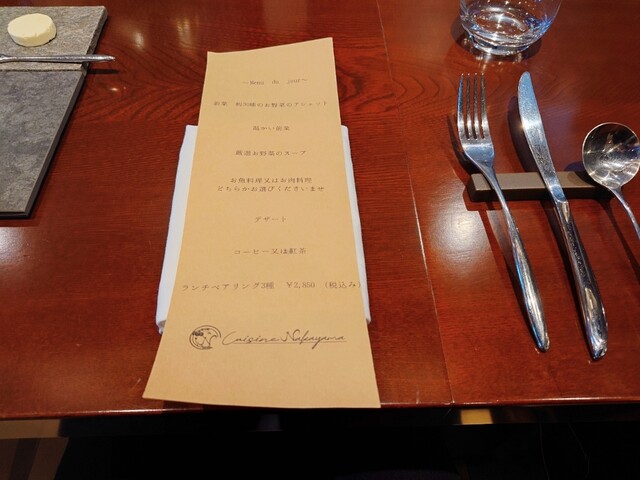 ~Menu du jour~
前菜 約30種のお野菜のアシェット
温かい前菜
厳選お野菜のスープ
お魚料理又はお肉料理
どちらかお選びくださいませ
デザート
コーヒー又は紅茶
ランチペアリング3種 ¥2,850 (税込み)
Cuisine Nakayama